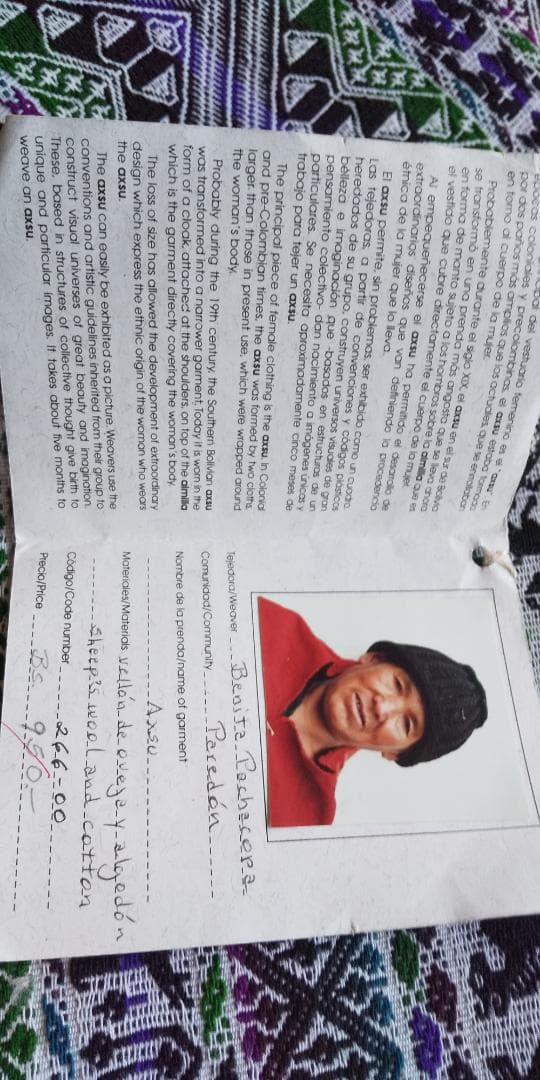 del vestuario femenino es el axsu. En
épocas coloniales y precolombinas, el axsu estaba formado
por dos paños más amplios que los actuales, que se enrollaban
en torno al cuerpo de la mujer.
Probablemente durante el siglo XIX, el axsu en el sur de Bolivia
se transformó en una prenda más angosta que se lleva ahora
en forma de manto sujeto a los hombros sobre la almilla que es
el vestido que cubre directamente el cuerpo de la mujer.
Al empequeñecerse el axsu ha permitido el desarrollo de
extraordinarios diseños que van definiendo la procedencia
étnica de la mujer que la lleva.
El axsu permite, sin problemas, ser exhibido como un cuadro.
Las tejedoras, a partir de convenciones y códigos plásticos
heredados de su grupo, construyen universos visuales de gran
belleza e imaginación que -basados en estructuras de un
pensamiento colectivo- dan nacimiento a imágenes únicas y
particulares. Se necesita aproximadamente cinco meses de
trabajo para tejer un axsu.
The principal piece of female clothing is the axsu. In Colonial
and pre-Colombian times, the axsu was formed by two cloths,
larger than those in present use, which were wrapped around
the woman's body.
Probably during the 19th century, the Southern Bolivian axsu
was transformed into a narrower garment. Today it is worn in the
form of a cloak, attached at the shoulders, on top of the almilla
which is the garment directly covering the woman's body.
The loss of size has allowed the development of extraordinary
design which express the ethnic origin of the woman who wears
the axsu.
The axsu can easily be exhibited as a picture. Weavers use the
conventions and artistic guidelines inherited from their group to
construct visual universes of great beauty and imagination.
These, based in structures of collective thought, give birth to
unique and particular images. It takes about five months to
weave an axsu.
Tejedora/Weaver Benita Pachacopa
Comunidad/Community Peredón
Nombre de la prenda/name of garment
Axsu
Materiales/Materials vellón de oveja y algodón
Sheep's wool and cotton
Código/Code number 266-00
Precio/Price Bs. 950.-